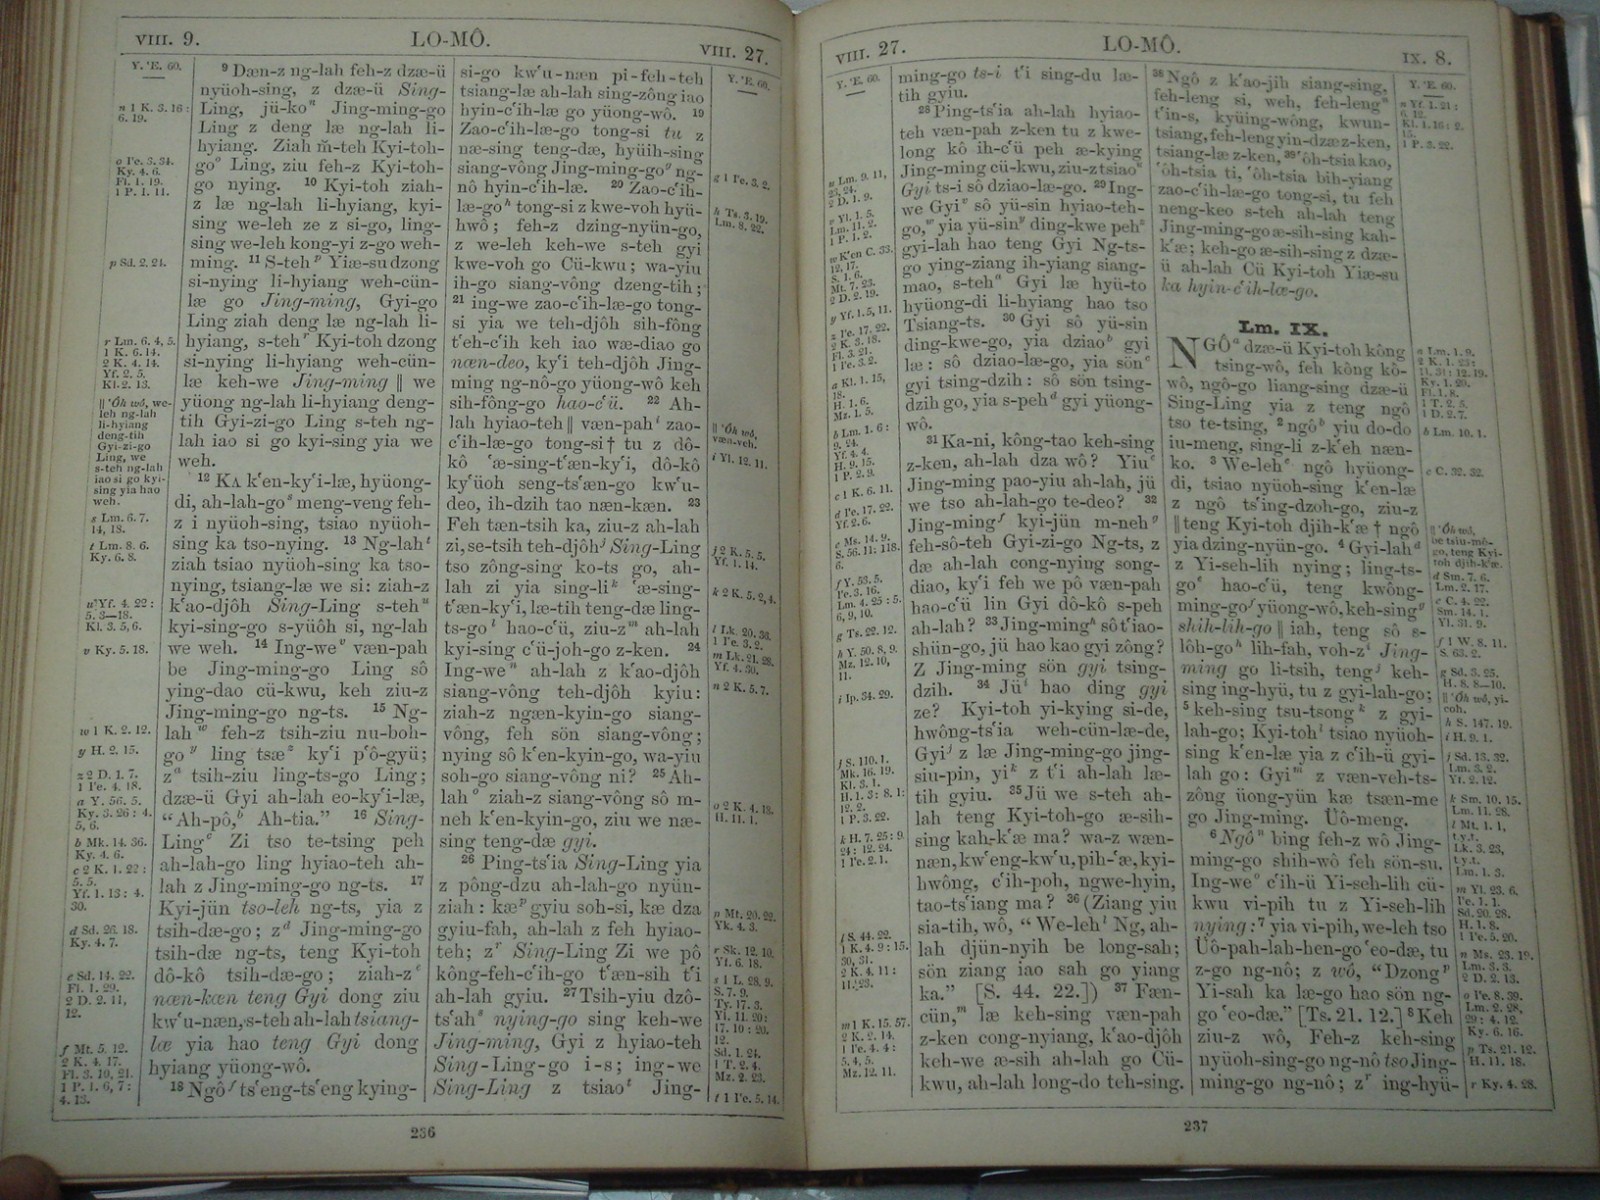 VIII. 9.
LO-MÔ.
VIII. 27.
Y. 'E. 60.
n 1 K. 3. 16:
6. 19.
o Pe. 3. 34.
Ky. 4. 6.
Fl. 1. 19.
1 P. 1. 11.
p Sd. 2. 24.
r Lm. 6. 4, 5.
1 K. 6. 14.
2 K. 4. 14.
Yf. 2. 5.
Kl. 2. 13.
|| 'Ôh wô, we-
leh ng-lah
li-hyiang
deng-tih
Gyi-zi-go
Ling, we
s-teh ng-lah
iao si go kyi-
sing yia hao
weh.
s Lm. 6. 7.
14, 18.
t Lm. 8. 6.
Ky. 6. 8.
u Yf. 4. 22:
5. 3—18.
Kl. 3. 5, 6.
v Ky. 5. 18.
w 1 K. 2. 12.
y H. 2. 15.
z 2 D. 1. 7.
1 Pe. 4. 18.
a Y. 56. 5.
Ky. 3. 26: 4.
5, 6.
b Mk. 14. 36.
Ky. 4. 6.
c 2 K. 1. 22:
5. 5.
Yf. 1. 13: 4.
30.
d Sd. 26. 18.
Ky. 4. 7.
e Sd. 14. 22.
Fl. 1. 29.
2 D. 2. 11,
12.
f Mt. 5. 12.
2 K. 4. 17.
Fl. 3. 10, 21.
1 P. 1. 6, 7:
4. 13.
9 Dæn-z ng-lah feh-z dzæ-ü
nyüoh-sing, z dzæ-ü Sing-
Ling, jü-ko n Jing-ming-go
Ling z deng læ ng-lah li-
hyiang. Ziah m̄-teh Kyi-toh-
go o Ling, ziu feh-z Kyi-toh-
go nying. 10 Kyi-toh ziah-
z læ ng-lah li-hyiang, kyi-
sing we-leh ze z si-go, ling-
sing we-leh kong-yi z-go weh-
ming. 11 S-teh p Yiæ-su dzong
si-nying li-hyiang weh-cün-
læ go Jing-ming, Gyi-go
Ling ziah deng læ ng-lah li-
hyiang, s-teh r Kyi-toh dzong
si-nying li-hyiang weh-cün-
læ keh-we Jing-ming || we
yüong ng-lah li-hyiang deng-
tih Gyi-zi-go Ling s-teh ng-
lah iao si go kyi-sing yia we
weh.
12 KA k'en-ky'i-læ, hyüong-
di, ah-lah-go s meng-veng feh-
z i nyüoh-sing, tsiao nyüoh-
sing ka tso-nying. 13 Ng-lah t
ziah tsiao nyüoh-sing ka tso-
nying, tsiang-læ we si: ziah-z
k'ao-djôh Sing-Ling s-teh u
kyi-sing-go s-yüôh si, ng-lah
we weh. 14 Ing-we v væn-pah
be Jing-ming-go Ling sô
ying-dao cü-kwu, keh ziu-z
Jing-ming-go ng-ts. 15 Ng-
lah w feh-z tsih-ziu nu-boh-
go y ling tsæ z ky'i p'ô-gyü;
z a tsih-ziu ling-ts-go Ling;
dzæ-ü Gyi ah-lah eo-ky'i-læ,
“Ah-pô, b Ah-tia.” 16 Sing-
Ling c Zi tso te-tsing peh
ah-lah-go ling hyiao-teh ah-
lah z Jing-ming-go ng-ts. 17
Kyi-jün tso-leh ng-ts, yia z
tsih-dæ-go; z d Jing-ming-go
tsih-dæ ng-ts, teng Kyi-toh
dô-kô tsih-dæ-go; ziah-z e
næn-kæn teng Gyi dong ziu
kw'u-næn, s-teh ah-lah tsiang-
læ yia hao teng Gyi dong
hyiang yüong-wô.
18 Ngô f ts'eng-ts'eng kying-
si-go kw'u-næn pi-feh-teh
tsiang-læ ah-lah sing-zông iao
hyin-c'ih-læ go yüong-wô. 19
Zao-c'ih-læ-go tong-si tu z
næ-sing teng-dæ, hyüih-sing
siang-vông Jing-ming-go g ng-
nô hyin-c'ih-læ. 20 Zao-c'ih-
læ-go h tong-si z kwe-voh hyü-
hwô; feh-z dzing-nyün-go,
z we-leh keh-we s-teh gyi
kwe-voh go Cü-kwu; wa-yiu
ih-go siang-vông dzeng-tih;
21 ing-we zao-c'ih-læ-go tong-
si yia we teh-djôh sih-fông
t'eh-c'ih keh iao wæ-diao go
næn-deo, ky'i teh-djôh Jing-
ming ng-nô-go yüong-wô keh
sih-fông-go hao-c'ü. 22 Ah-
lah hyiao-teh || væn-pah i zao-
c'ih-læ-go tong-si † tu z dô-
kô 'æ-sing-t'æn-ky'i, dô-kô
ky'üoh seng-ts'æn-go kw'u-
deo, ih-dzih tao næn-kæn. 23
Feh tæn-tsih ka, ziu-z ah-lah
zi, se-tsih teh-djôh j Sing-Ling
tso zông-sing ko-ts go, ah-
lah zi yia sing-li k 'æ-sing-
t'æn-ky'i, læ-tih teng-dæ ling-
ts-go l hao-c'ü, ziu-z m ah-lah
kyi-sing c'ü-joh-go z-ken. 24
Ing-we n ah-lah z k'ao-djôh
siang-vông teh-djôh kyiu:
ziah-z ngæn-kyin-go siang-
vông, feh sön siang-vông;
nying sô k'en-kyin-go, wa-yiu
soh-go siang-vông ni? 25 Ah-
lah o ziah-z siang-vông sô m-
neh k'en-kyin-go, ziu we næ-
sing teng-dæ gyi.
26 Ping-ts'ia Sing-Ling yia
z pông-dzu ah-lah-go nyün-
ziah: kæ p gyiu soh-si, kæ dza
gyiu-fah, ah-lah z feh hyiao-
teh; z r Sing-Ling Zi we pô
kông-feh-c'ih-go t'æn-sih t'i
ah-lah gyiu. 27 Tsih-yiu dzô-
ts'ah s nying-go sing keh-we
Jing-ming, Gyi z hyiao-teh
Sing-Ling-go i-s; ing-we
Sing-Ling z tsiao t Jing-
Y. 'E. 60.
g 1 Pe. 3. 2.
h Ts. 3. 19.
Lm. 8. 22.
|| 'Ôh wô,
væn-veh.
i Yl. 12. 11.
j 2 K. 5. 5.
Yf. 1. 14.
k 2 K. 5. 2, 4.
l Lk. 20. 36.
1 Pe. 3. 2.
m Lk. 21. 28.
Yf. 4. 30.
n 2 K. 5. 7.
o 2 K. 4. 18.
H. 11. 1.
p Mt. 20. 22.
Yk. 4. 3.
r Sk. 12. 10.
Yf. 6. 18.
s 1 L. 28. 9.
S. 7. 9.
Ty. 17. 3.
Yl. 11. 20:
17. 10: 20.
12.
Sd. 1. 24.
1 T. 2. 4.
Mz. 2. 23.
t 1 Pe. 5. 14.
236
VIII. 27.
LO-MÔ.
IX. 8.
Y. 'E. 60.
u Lm. 9. 11,
23, 24.
2 D. 1. 9.
v Yl. 1. 5.
Lm. 11. 2.
1 P. 1. 2.
w K'en C. 33.
12, 17.
S. 1. 6.
Mt. 7. 23.
2 D. 2. 19.
y Yf. 1. 5, 11.
z Pe. 17. 22.
2 K. 3. 18.
Fl. 3. 21.
1 Pe. 3. 2.
a Kl. 1. 15,
18.
H. 1. 6.
Mz. 1. 5.
b Lm. 1. 6:
9. 24.
Yf. 4. 4.
H. 9. 15.
1 P. 2. 9.
c 1 K. 6. 11.
d Pe. 17. 22.
Yf. 2. 6.
e Ms. 14. 9.
S. 56. 11: 118.
6.
f Y. 53. 5.
Pe. 3. 16.
Lm. 4. 25: 5.
6, 9, 10.
g Ts. 22. 12.
h Y. 50. 8, 9.
Mz. 12. 10,
11.
i Ip. 34. 29.
j S. 110. 1.
Mk. 16. 19.
Kl. 3. 1.
H. 1. 3: 8. 1:
12. 2.
1 P. 3. 22.
k H. 7. 25: 9.
24: 12. 24.
1 Pe. 2. 1.
l S. 44. 22.
1 K. 4. 9: 15.
30, 31.
2 K. 4. 11:
11. 23.
m 1 K. 15. 57.
2 K. 2. 14.
1 Pe. 4. 4:
5. 4, 5.
Mz. 12. 11.
ming-go ts-i t'i sing-du læ-
tih gyiu.
28 Ping-ts'ia ah-lah hyiao-
teh væn-pah z-ken tu z kwe-
long kô ih-c'ü peh æ-kying
Jing-ming cü-kwu, ziu-z tsiao u
Gyi ts-i sô dziao-læ-go. 29 Ing-
we Gyi v sô yü-sin hyiao-teh-
go, w yia yü-sin y ding-kwe peh z
gyi-lah hao teng Gyi Ng-ts-
go ying-ziang ih-yiang siang-
mao, s-teh a Gyi læ hyü-to
hyüong-di li-hyiang hao tso
Tsiang-ts. 30 Gyi sô yü-sin
ding-kwe-go, yia dziao b gyi
læ: sô dziao-læ-go, yia sön c
gyi tsing-dzih: sô sön tsing-
dzih go, yia s-peh d gyi yüong-
wô.
31 Ka-ni, kông-tao keh-sing
z-ken, ah-lah dza wô? Yiu e
Jing-ming pao-yiu ah-lah, jü
we tso ah-lah-go te-deo? 32
Jing-ming f kyi-jün m-neh g
feh-sô-teh Gyi-zi-go Ng-ts, z
dæ ah-lah cong-nying song-
diao, ky'i feh we pô væn-pah
hao-c'ü lin Gyi dô-kô s-peh
ah-lah? 33 Jing-ming h sô t'iao-
shün-go, jü hao kao gyi zông?
Z Jing-ming sön gyi tsing-
dzih. 34 Jü i hao ding gyi
ze? Kyi-toh yi-kying si-de,
hwông-ts'ia weh-cün-læ-de,
Gyi j z læ Jing-ming-go jing-
siu-pin, yi k z t'i ah-lah læ-
tih gyiu. 35 Jü we s-teh ah-
lah teng Kyi-toh-go æ-sih-
sing kah-k'æ ma? wa-z wæn-
næn, kw'eng-kw'u, pih-'æ, kyi-
hwông, c'ih-poh, ngwe-hyin,
tao-ts'iang ma? 36 (Ziang yiu
sia-tih, wô, “We-leh l Ng, ah-
lah djün-nyih be long-sah;
sön ziang iao sah go yiang
ka.” [S. 44. 22.]) 37 Fæn-
cün, m læ keh-sing væn-pah
z-ken cong-nyiang, k'ao-djôh
keh-we æ-sih ah-lah go Cü-
kwu, ah-lah long-do teh-sing.
38 Ngô z k'ao-jih siang-sing,
feh-leng si, weh, feh-leng n
t'in-s, kyüing-wông, kwun-
tsiang, feh-leng yin-dzæ z-ken,
tsiang-læ z-ken, 39 'ôh-tsia kao,
'ôh-tsia ti, 'ôh-tsia bih-yiang
zao-c'ih-læ-go tong-si, tu feh
neng-keo s-teh ah-lah teng
Jing-ming-go æ-sih-sing kah-
k'æ; keh-go æ-sih-sing z dzæ-
ü ah-lah Cü Kyi-toh Yiæ-su
ka hyin-c'ih-læ-go.
Lm. IX.
NGÔ a dzæ-ü Kyi-toh kông
tsing-wô, feh kông kô-
wô, ngô-go liang-sing dzæ-ü
Sing-Ling yia z teng ngô
tso te-tsing, 2 ngô b yiu do-do
iu-meng, sing-li z-k'eh næn-
ko. 3 We-leh c ngô hyüong-
di, tsiao nyüoh-sing k'en-læ
z ngô ts'ing-dzoh-go, ziu-z
|| teng Kyi-toh djih-k'æ † ngô
yia dzing-nyün-go. 4 Gyi-lah d
z Yi-seh-lih nying; ling-ts-
go e hao-c'ü, teng kwông-
ming-go f yüong-wô, keh-sing g
shih-lih-go || iah, teng sô s-
lôh-go h lih-fah, voh-z i Jing-
ming go li-tsih, teng j keh-
sing ing-hyü, tu z gyi-lah-go;
5 keh-sing tsu-tsong k z gyi-
lah-go; Kyi-toh l tsiao nyüoh-
sing k'en-læ yia z c'ih-ü gyi-
lah go: Gyi m z væn-veh-ts-
zông üong-yün kæ tsæn-me
go Jing-ming. Üô-meng.
6 Ngô n bing feh-z wô Jing-
ming-go shih-wô feh sön-su.
Ing-we o c'ih-ü Yi-seh-lih cü-
kwu vi-pih tu z Yi-seh-lih
nying: 7 yia vi-pih, we-leh tso
Üô-pah-lah-hen-go 'eo-dæ, tu
z-go ng-nô; z wô, “Dzong p
Yi-sah ka læ-go hao sön ng-
go 'eo-dæ.” [Ts. 21. 12.] 8 Keh
ziu-z wô, Feh-z keh-sing
nyüoh-sing-go ng-nô tso Jing-
ming-go ng-nô; z r ing-hyü-
Y. 'E. 60.
n Yf. 1. 21:
6. 12.
Kl. 1. 16: 2.
15.
1 P. 3. 22.
a Lm. 1. 9.
2 K. 1. 23:
11. 31: 12. 19.
Ky. 1. 20.
Fl. 1. 8.
1 T. 2. 5.
1 D. 2. 7.
b Lm. 10. 1.
c C. 32. 32.
|| 'Ôh wô,
be tsiu-mô-
go, teng Kyi-
toh djih-k'æ.
d Sm. 7. 6.
Lm. 2. 17.
e C. 4. 22.
Sm. 14. 1.
Yl. 31. 9.
f 1 W. 8. 11.
S. 63. 2.
g Sd. 3. 25.
H. 8. 8—10.
|| 'Ôh wô, yi-
coh.
h S. 147. 19.
i H. 9. 1.
j Sd. 13. 32.
Lm. 3. 2.
Yf. 2. 12.
k Sm. 10. 15.
Lm. 11. 28.
l Mt. 1. 1,
t.y.t.
Lk. 3. 23,
t.y.t.
Lm. 1. 3.
m Yl. 23. 6.
Pe. 1. 1.
Sd. 20. 28.
H. 1. 8.
1 Pe. 5. 20.
n Ms. 23. 19.
Lm. 3. 3.
2 D. 2. 13.
o Pe. 8. 39.
Lm. 2. 28,
29: 4. 12.
Ky. 6. 16.
p Ts. 21. 12.
H. 11. 18.
r Ky. 4. 28.
237